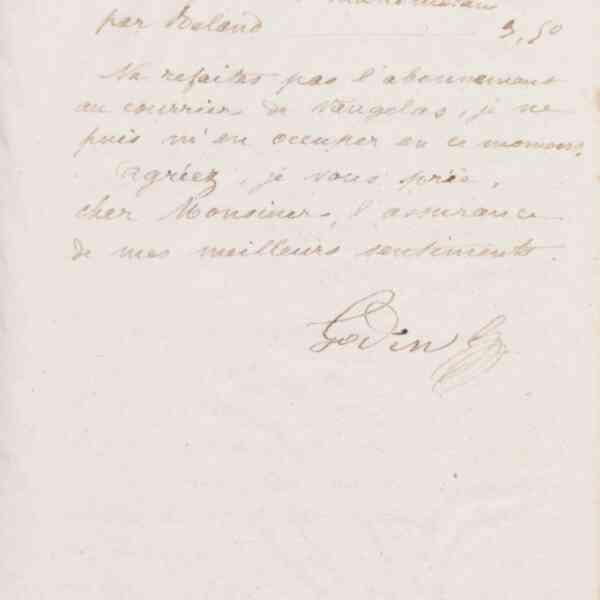 par Roland 3,50
Ne refaites pas l'abonnement
au courrier de Vaugelas, je ne
puis m'en occuper en ce moment.
Agréez, je vous prie,
cher Monsieur, l'assurance
de mes meilleurs sentiments.
Godin